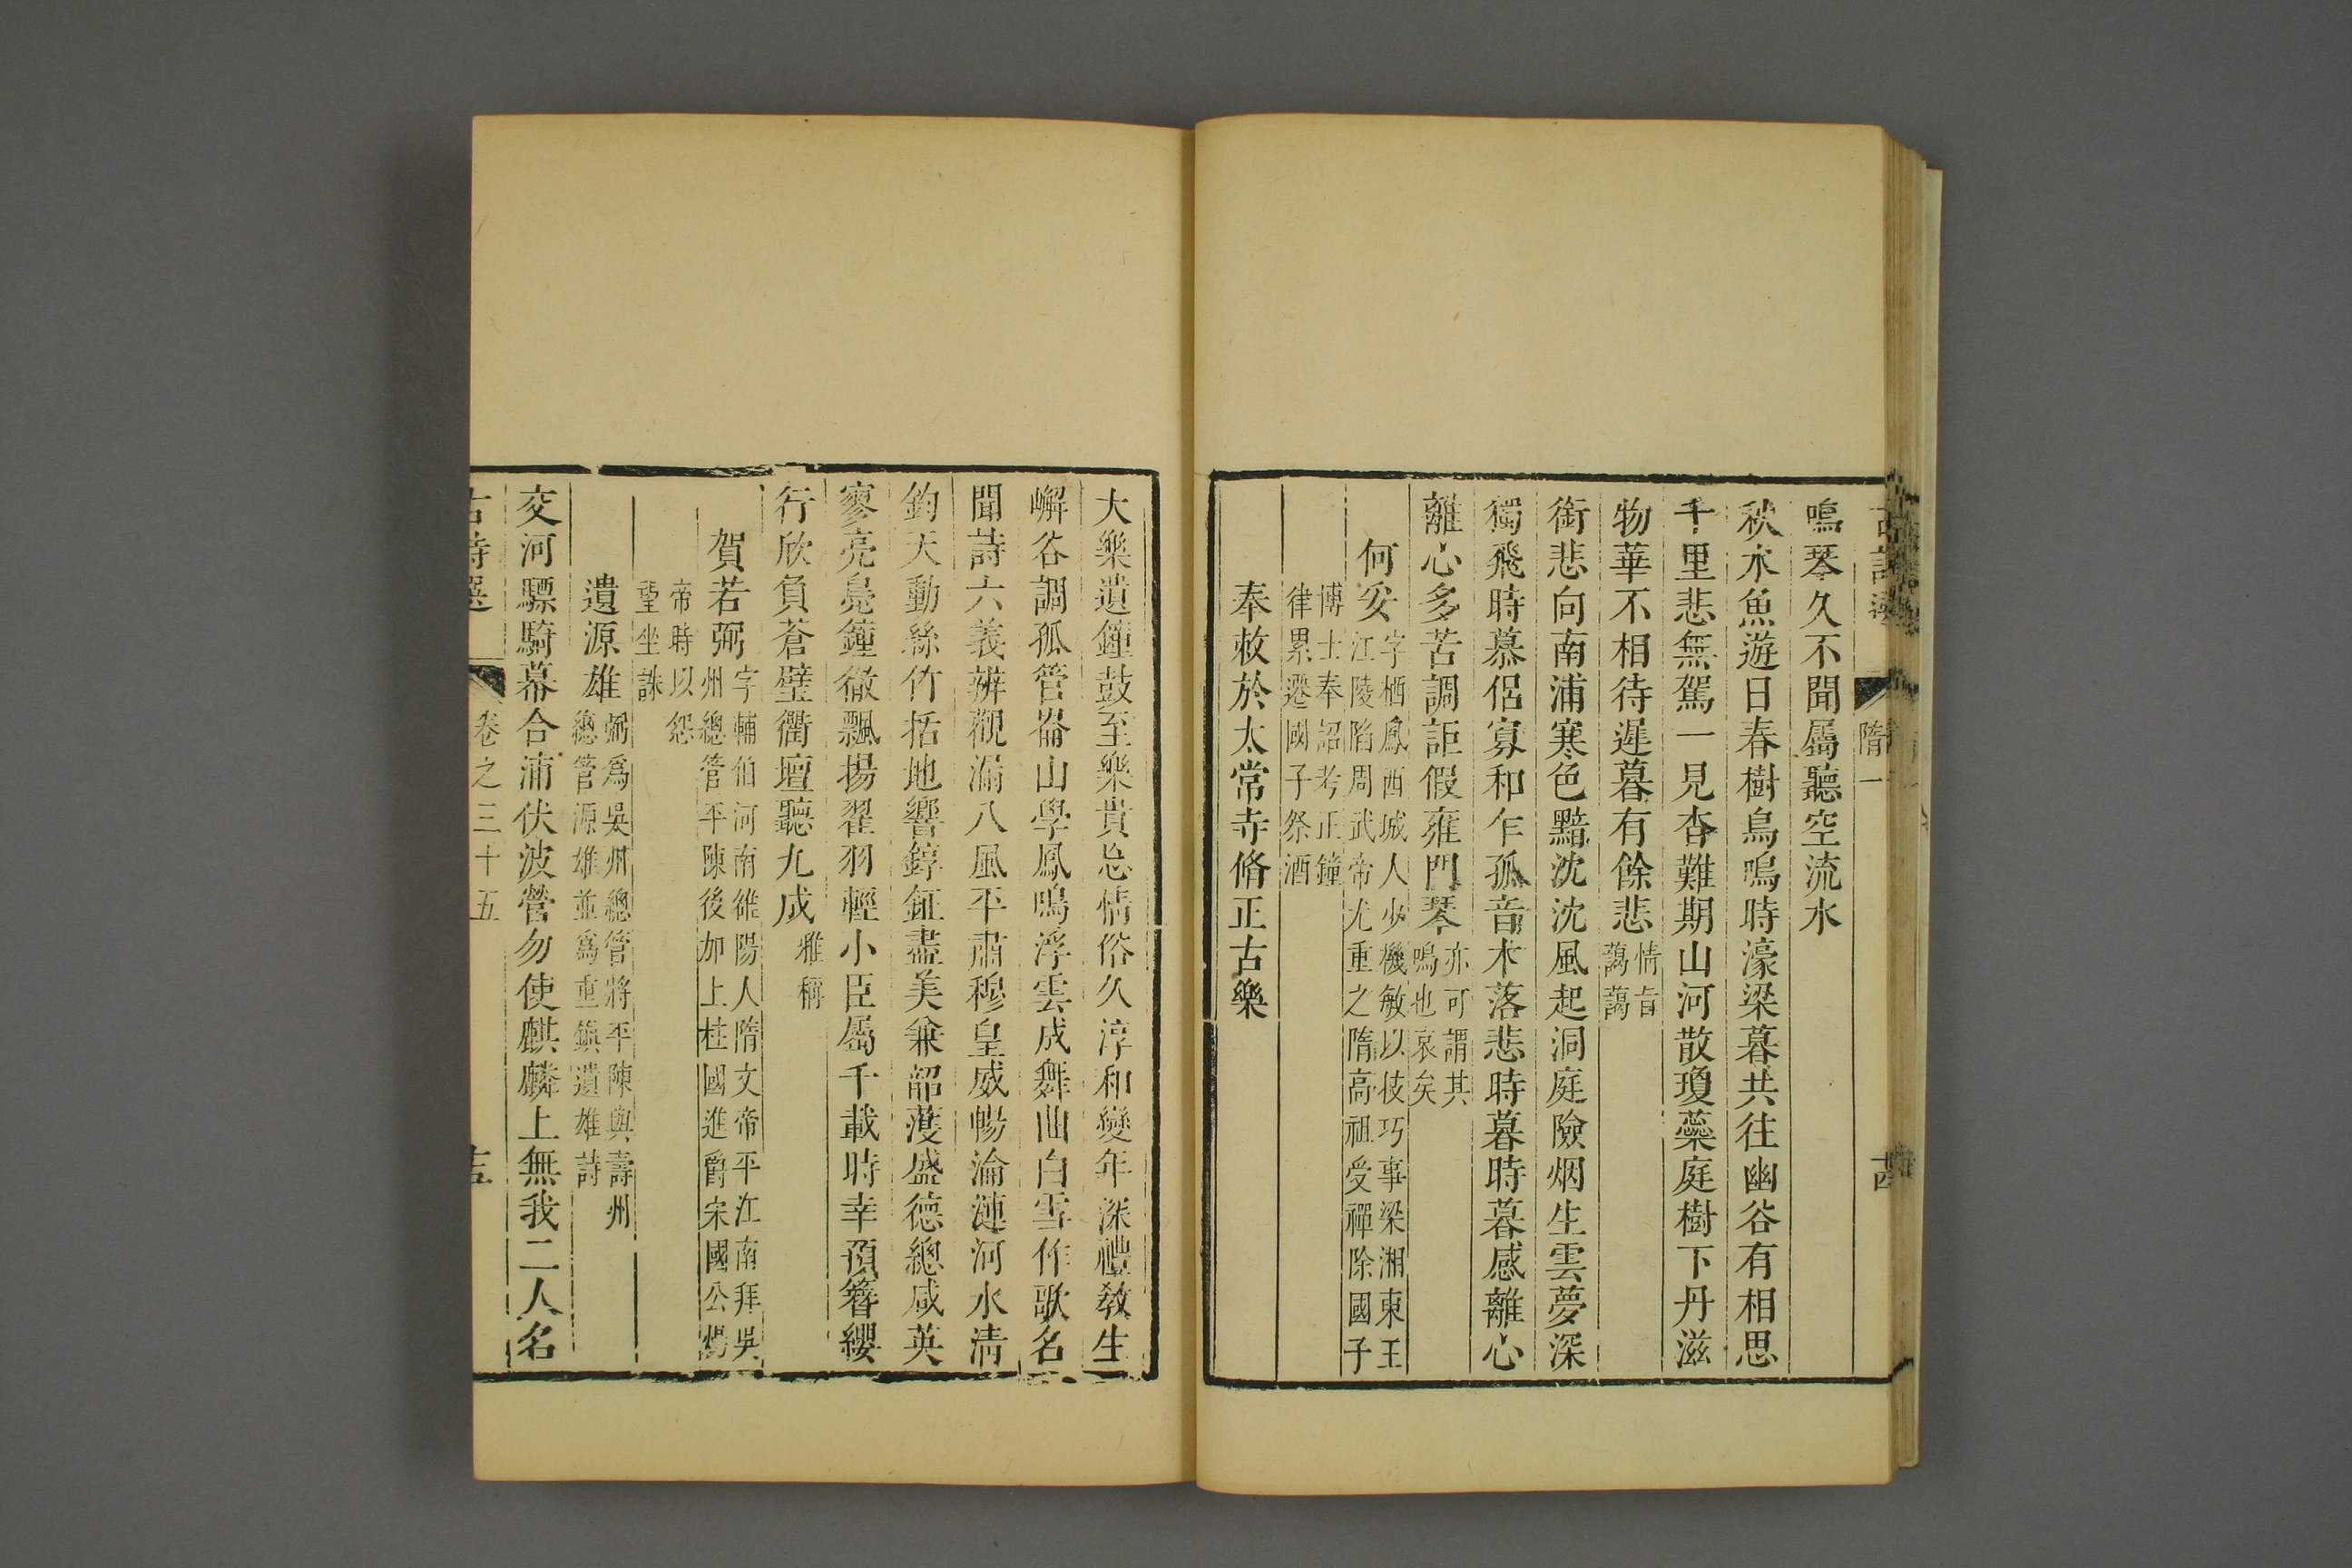 鳴琴久不聞屬聽空流水
秋水魚遊日春樹鳥鳴時濠梁暮共往幽谷有相思
千里悲無駕一見杳難期山河散瓊蘂庭樹下丹滋
物華不相待遲暮有餘悲情旨藹藹
銜悲向南浦寒色黯沈沈風起洞庭險烟生雲夢深
獨飛時慕侶寡和乍孤音木落悲時暮時暮感離心
離心多苦調詎假雍門琴亦可謂其鳴也哀矣
何妥字栖鳳西城人少機敏以伎巧事梁湘東王
江陵陷周武帝尤重之隋高祖受禪除國子
博士奉詔考正鐘
律累遷國子祭酒
奉敕於太常寺脩正古樂
隋一
十四
大樂遺鐘鼓至樂貴忘情俗久淳和變年深禮教生
嶰谷調孤管崙山學鳳鳴浮雲成舞曲白雪作歌名
聞詩六義辨觀漏八風平肅穆皇威暢淪漣河水清
鈞天動絲竹括地響錞鉦盡美兼韶濩盛德總咸英
寥亮鳧鐘徹飄揚翟羽輕小臣屬千載時幸預簪纓
行欣負蒼璧衢壇聽九成雅稱
賀若弼字輔伯河南雒陽人隋文帝平江南拜吳
州總管平陳後加上柱國進爵宋國公煬
帝時以怨
望坐誅
遺源雄弼爲吳州總管將平陳與壽州
總管源雄並爲重鎮遺雄詩
交河驃騎幕合浦伏波營勿使麒麟上無我二人名
古詩選
卷之三十五